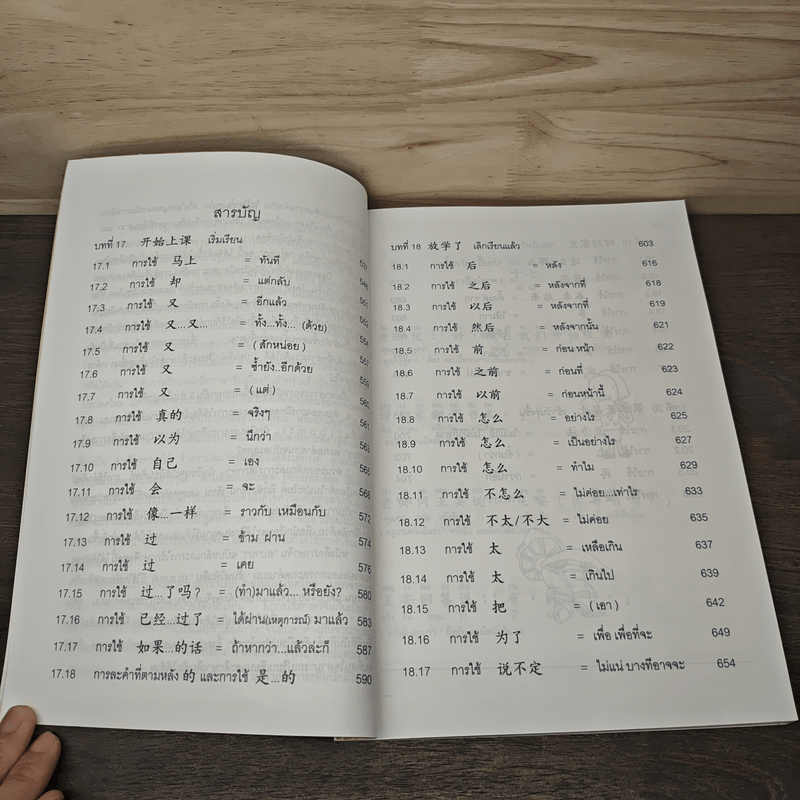 สารบัญ
บทที่ 17 开始上课 เริ่มเรียน
17.1 การใช้ 马上 = ทันที 531
17.2 การใช้ 却 = แต่กลับ
17.3 การใช้ 又 = อีกแล้ว
17.4 การใช้ 又...又... = ทั้ง...ทั้ง... (ด้วย)
17.5 การใช้ 又 = (สักหน่อย)
17.6 การใช้ 又 = ซ้ำยัง..อีกด้วย
17.7 การใช้ 又 = (แต่)
17.8 การใช้ 真的 = จริงๆ
17.9 การใช้ 以为 = นึกว่า
17.10 การใช้ 自己 = เอง 565
17.11 การใช้ 会 = จะ 568
17.12 การใช้ 像...一样 = ราวกับ เหมือนกับ 572
17.13 การใช้ 过 = ข้าม ผ่าน 574
17.14 การใช้ 过 = เคย 576
17.15 การใช้ 过...了吗? = (ทำ)มาแล้ว... หรือยัง? 580
17.16 การใช้ 已经...过了 = ได้ผ่าน(เหตุการณ์) มาแล้ว 583
17.17 การใช้ 如果...的话 = ถ้าหากว่า...แล้วล่ะก็ 587
17.18 การละคำที่ตามหลัง 的 และการใช้ 是...的 590
บทที่ 18 放学了 เลิกเรียนแล้ว 603
18.1 การใช้ 后 = หลัง 616
18.2 การใช้ 之后 = หลังจากที่ 618
18.3 การใช้ 以后 = หลังจากที่ 619
18.4 การใช้ 然后 = หลังจากนั้น 621
18.5 การใช้ 前 = ก่อน หน้า 622
18.6 การใช้ 之前 = ก่อนที่ 623
18.7 การใช้ 以前 = ก่อนหน้านี้ 624
18.8 การใช้ 怎么 = อย่างไร 625
18.9 การใช้ 怎么 = เป็นอย่างไร 627
18.10 การใช้ 怎么 = ทำไม 629
18.11 การใช้ 不怎么 = ไม่ค่อย...เท่าไร 633
18.12 การใช้ 不太/不大 = ไม่ค่อย 635
18.13 การใช้ 太 = เหลือเกิน 637
18.14 การใช้ 太 = เกินไป 639
18.15 การใช้ 把 = (เอา) 642
18.16 การใช้ 为了 = เพื่อ เพื่อที่จะ 649
18.17 การใช้ 说不定 = ไม่แน่ บางทีอาจจะ 654